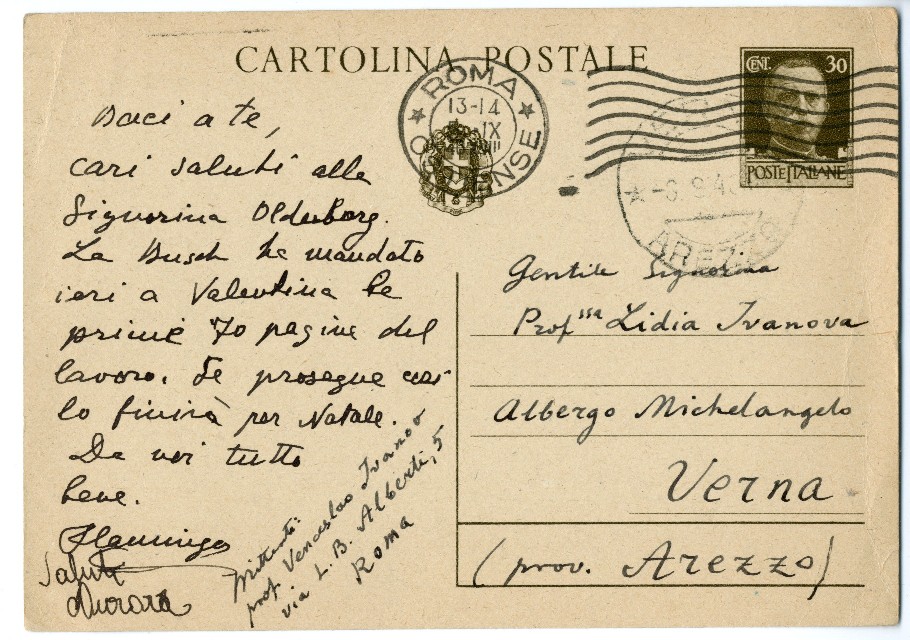 CARTOLINA POSTALE
CENT. 30
POSTE ITALIANE
ROMA
13-14
IX
AREZZO
Baci a te,
cari saluti alla
Signorina Oldenborg.
La Busch ha mandato
ieri a Valentina le
prime 70 pagine del
lavoro. Se prosegue così
lo finirà per Natale.
Da noi tutto
bene.
Flamingo
Saluti
Mittente:
prof. Venceslao Ivanov
via L. B. Alberti, 5
Roma
Gentile Signorina
Prof.ssa Lidia Ivanova
Albergo Michelangelo
Verna
(prov. Arezzo)